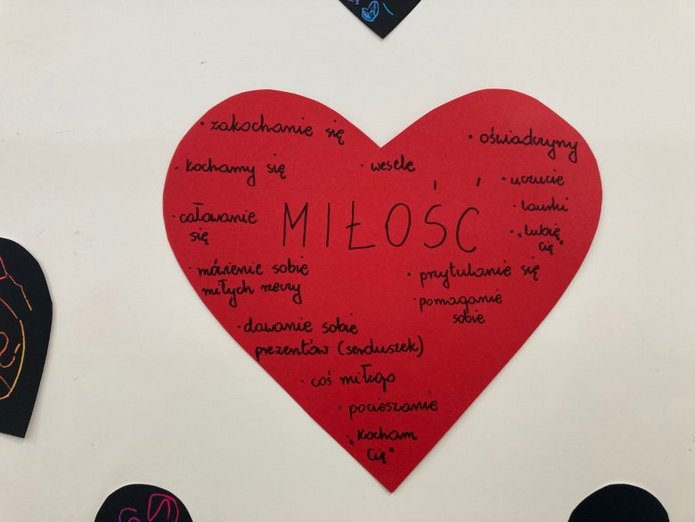 • zakochanie się
• oświadczyny
• kochamy się
• wesele
• uczucie
• buziaki
• całowanie
się
MIŁOŚĆ
• „lubię
cię"
• mówienie sobie
miłych rzeczy
• przytulanie się
• pomaganie
sobie
• dawanie sobie
prezentów (serduszek)
• coś miłego
• pocieszanie
• „Kocham
Cię"